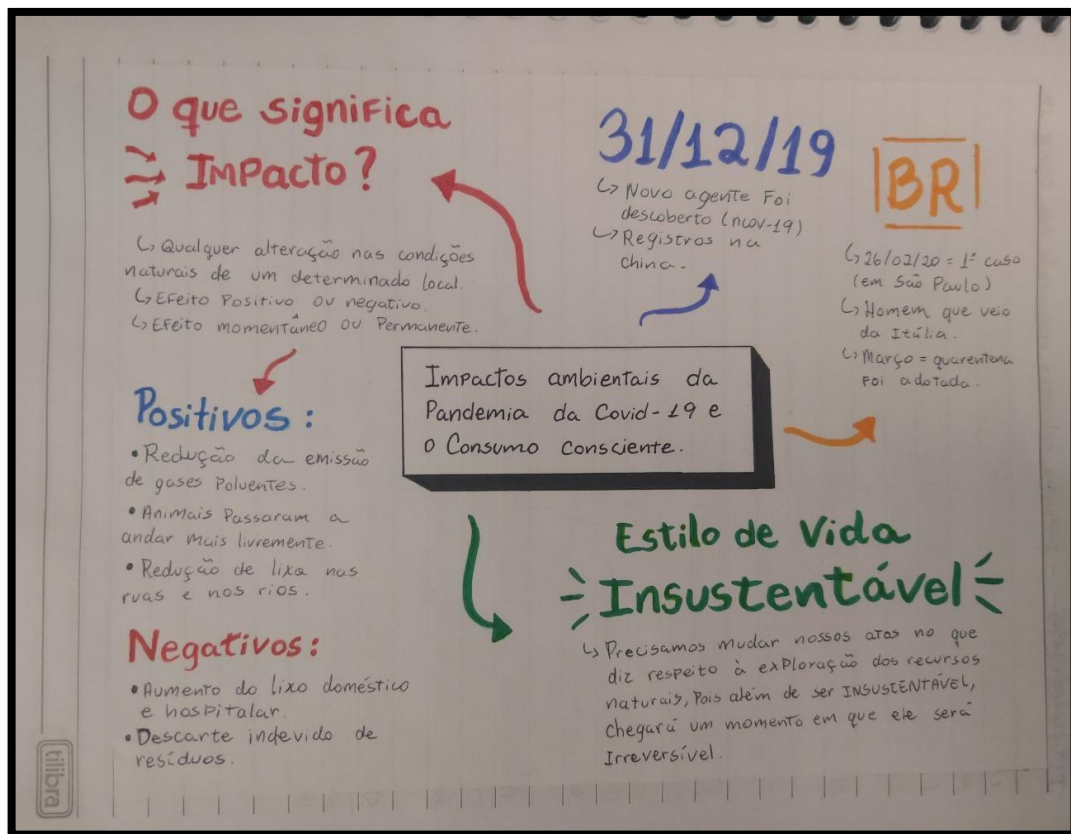 O que significa
Impacto?
↳ Qualquer alteração nas condições
naturais de um determinado local.
↳ Efeito Positivo ou negativo.
↳ Efeito momentâneo ou Permanente.
Positivos:
• Redução da emissão
de gases Poluentes.
• Animais Passaram a
andar mais livremente.
• Redução de lixo nas
ruas e nos rios.
Negativos:
• Aumento do lixo doméstico
e hospitalar.
• Descarte indevido de
resíduos.
31/12/19
↳ Novo agente Foi
descoberto (ncov-19)
↳ Registros na
china.
BR
↳ 26/02/20 = 1º caso
(em São Paulo)
↳ Homem que veio
da Itália.
↳ Março = quarentena
Foi adotada.
Impactos ambientais da
Pandemia da Covid-19 e
o Consumo consciente.
Estilo de Vida
Insustentável
↳ Precisamos mudar nossos atos no que
diz respeito à exploração dos recursos
naturais, Pois além de ser INSUSTENTÁVEL,
chegará um momento em que ele será
Irreversível.
tilibra